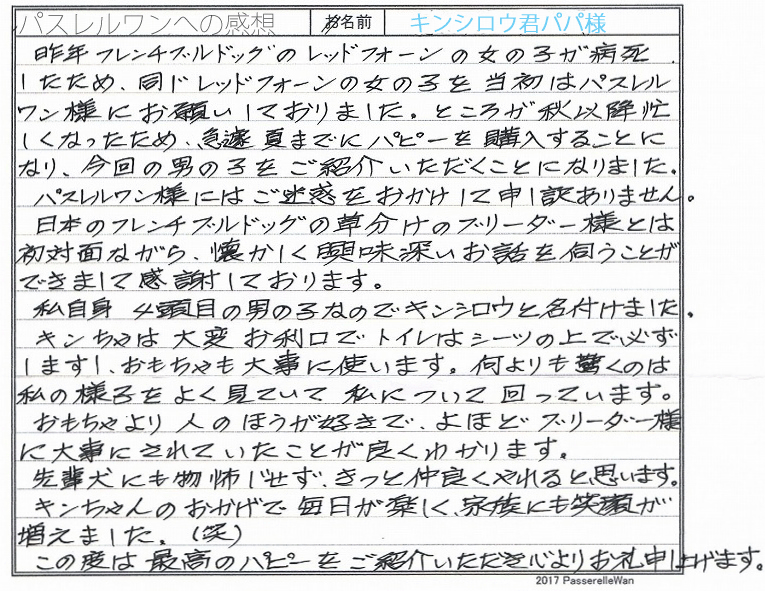 パスレルワンへの感想 お名前 キンシロウ君パパ様
昨年フレンチブルドッグのレッドフォーンの女の子が病死
したため、同じレッドフォーンの女の子を当初はパスレル
ワン様にお願いしておりました。ところが秋以降忙
しくなったため、急遽夏までにパピーを購入することに
なり、今回の男の子をご紹介いただくことになりました。
パスレルワン様にはご迷惑をおかけして申し訳ありません。
日本のフレンチブルドッグの草分けのブリーダー様とは
初対面ながら、懐かしく興味深いお話を伺うことが
できまして感謝しております。
私自身4頭目の男の子なのでキンシロウと名付けました。
キンちゃは大変お利口でトイレはシーツの上で必ず
しますし、おもちゃも大事に使います。何よりも驚くのは
私の様子をよく見ていて私について回っています。
おもちゃより人のほうが好きで、よほどブリーダー様
に大事にされていたことが良くわかります。
先輩犬にも物怖じせず、きっと仲良くやれると思います。
キンちゃんのおかげで毎日が楽しく、家族にも笑顔が
増えました。(笑)
この度は最高のパピーをご紹介いただき心よりお礼申し上げます。
2017 PasserelleWan